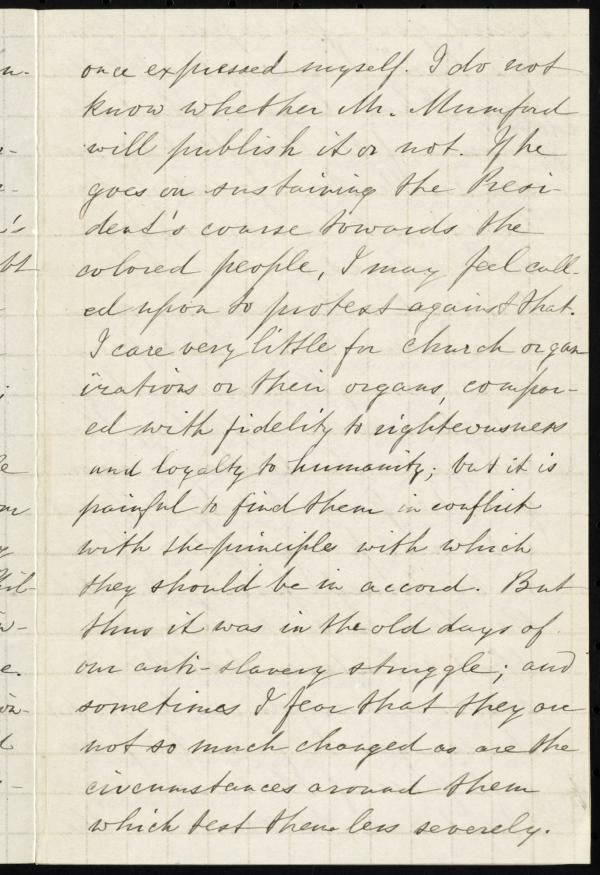 once expressed myself. I do not
know whether Mr. Mumford
will publish it or not. If he
goes on sustaining the Presi-
dent's course towards the
colored people, I may feel call-
ed upon to protest against that.
I care very little for church organ
izations or their organs, compar-
ed with fidelity to righteousness
and loyalty to humanity; but it is
painful to find them in conflict
with the principles with which
they should be in accord. But
thus it was in the old days of
our anti-slavery struggle; and
sometimes I fear that they are
not so much changed as are the
circumstances around them
which test them less severely.